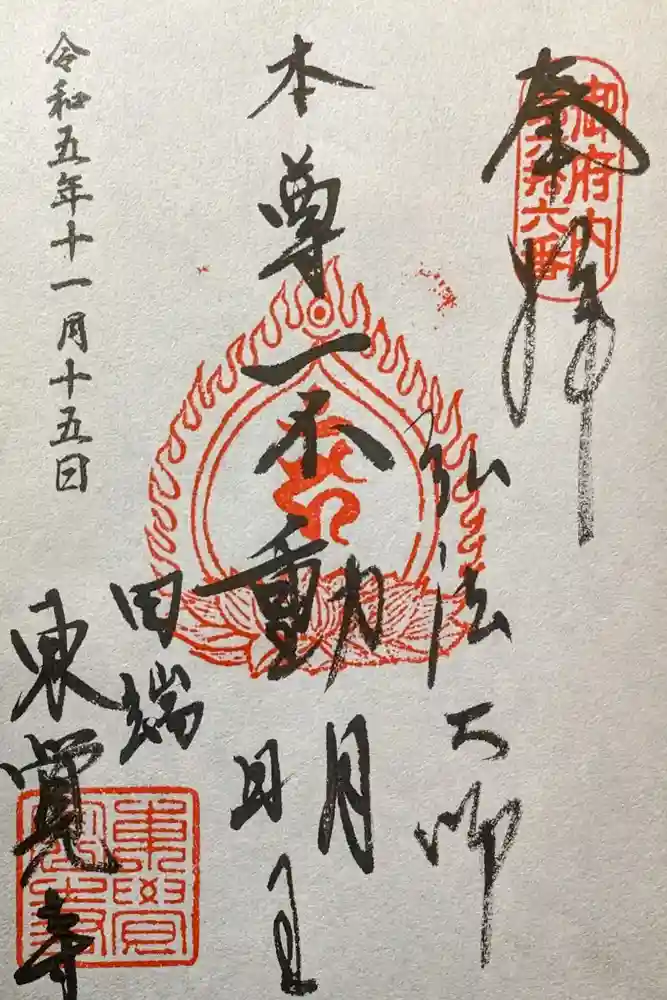 奉拝
御府内
第六十六番
弘法大師
本尊不動明王
田端
東覺寺
東覺
寺
令和五年十一月十五日